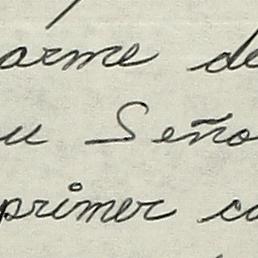 arme de
u Seño
primer co